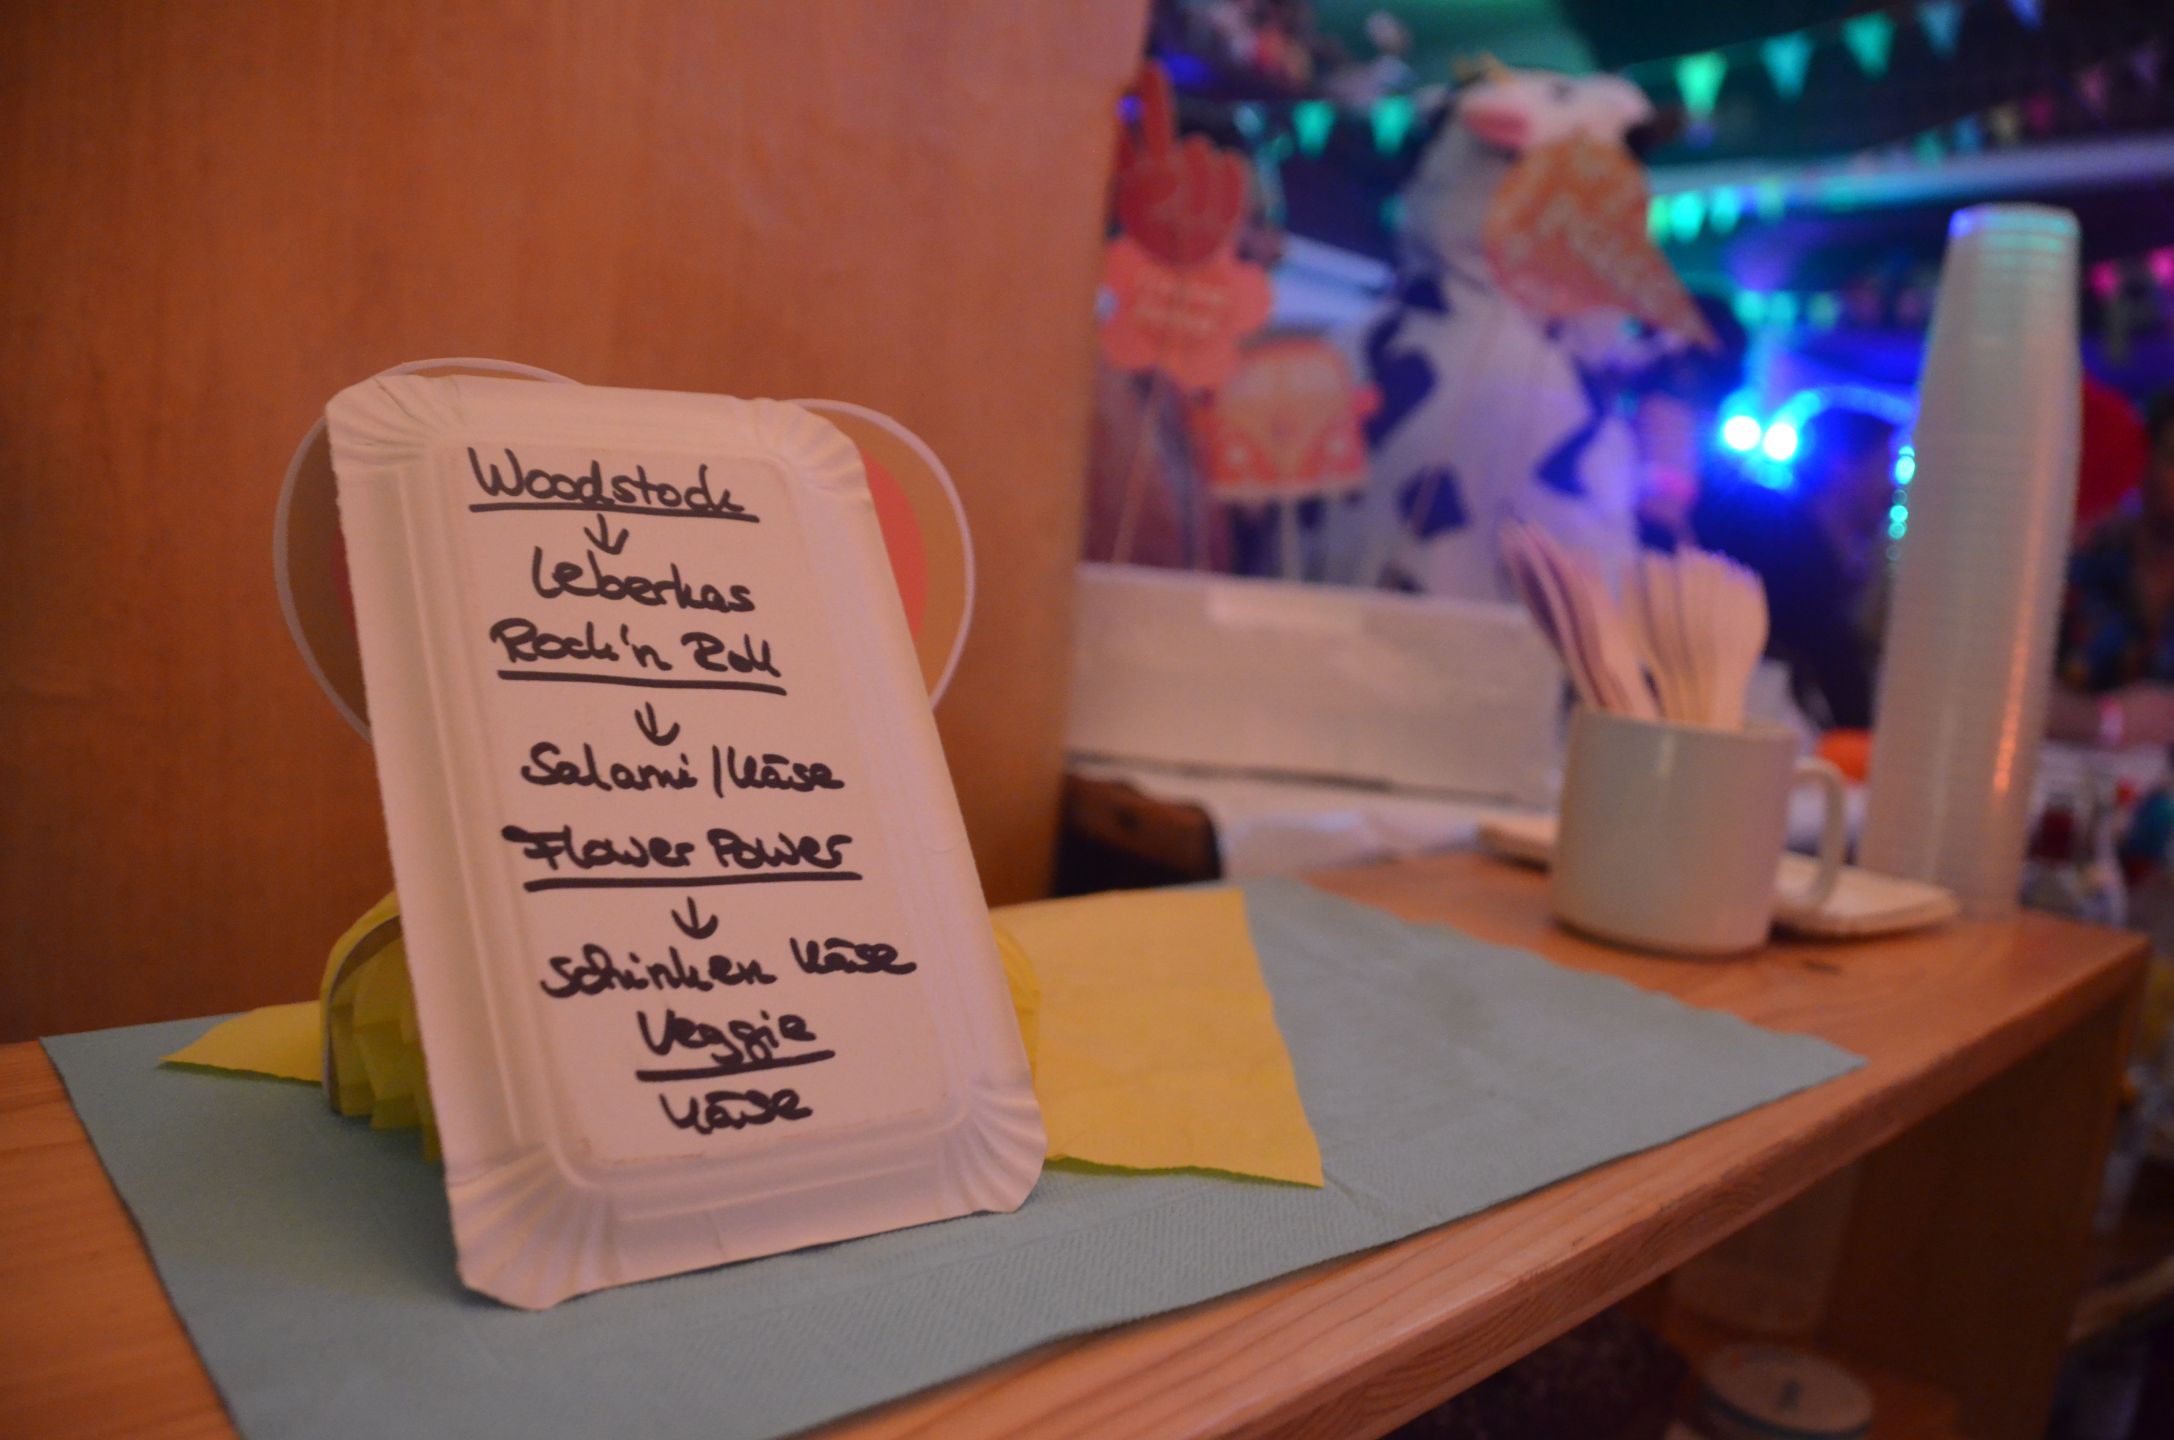 Woodstock
↓
Leberkas
Rock'n Roll
↓
Salami/Käse
Flower Power
↓
Schinken Käse
Veggie
Käse